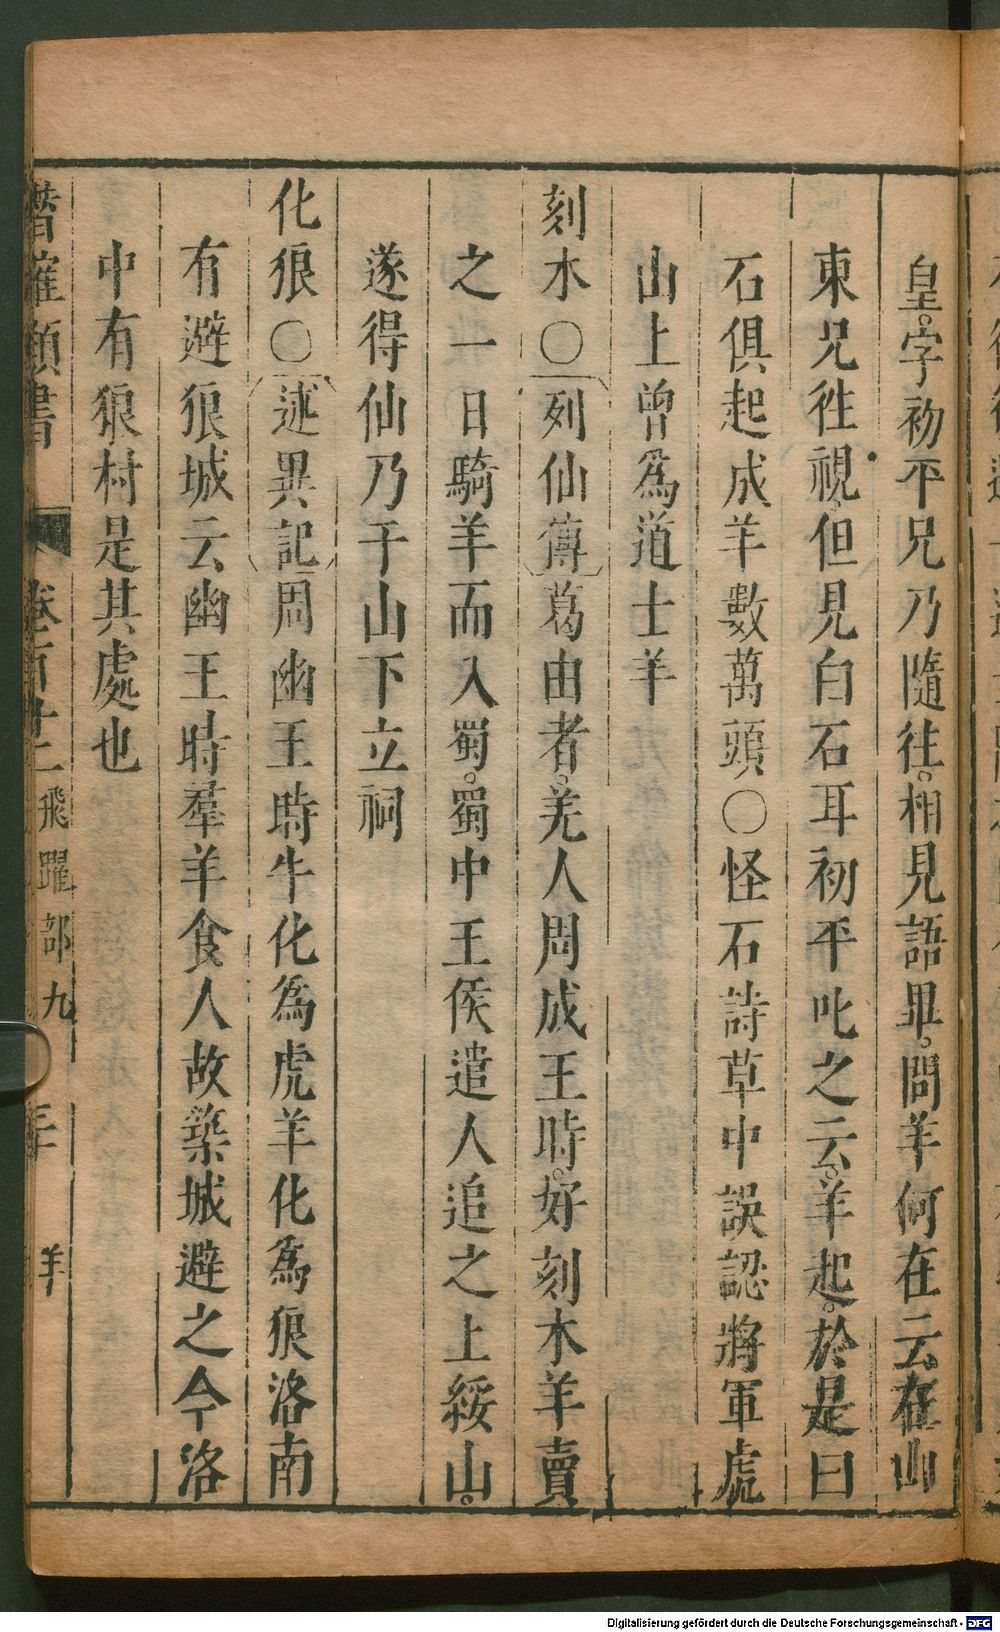 皇。字初平兄乃隨往。相見語畢。問羊何在云。在山
東兄徃視。但見白石耳初平叱之云。羊起。於是曰
石俱起成羊數萬頭〇怪石詩草中誤認將軍虎
山上曾為道士羊
刻木〇列仙傳葛由者。羌人周成王時。好刻木羊賣
之一日騎羊而入蜀。蜀中王侯遣人追之上綏山。
遂得仙乃于山下立祠
化狼〇述異記周幽王時牛化為虎羊化為狼洛南
有避狼城云幽王時羣羊食人故築城避之今洛
中有狼村是其處也
潛確類書 卷百十二 飛躍部九 三十 羊
Digitalisierung gefördert durch die Deutsche Forschungsgemeinschaft - DFG